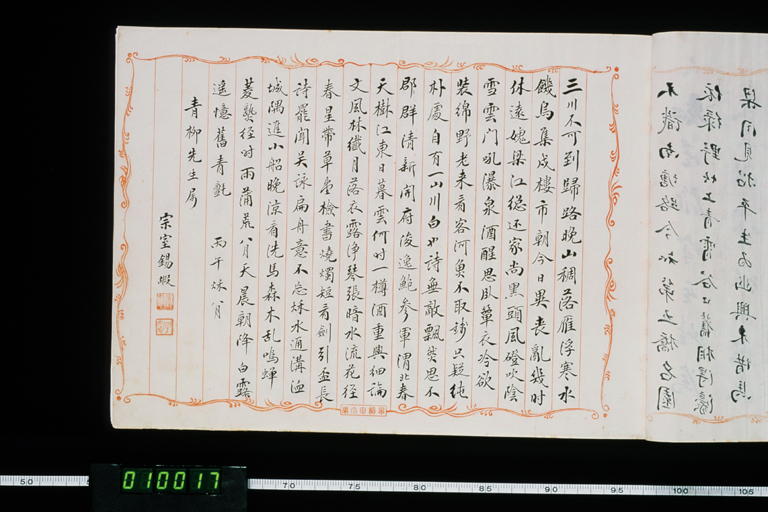 不識南塘路今知第五橋名園
依綠野竹上青霄谷口舊相得濠
梁同見招平生為幽興未惜馬
三川不可到歸路晚山稠落雁浮寒水
饑烏集戍樓市朝今日異喪亂幾時
休遠愧梁江總還家尚黑頭風磴吹陰
雪雲門吼瀑泉酒醒思臥簟衣冷欲
裝綿野老來看客河魚不取錢只疑純
朴處自有一山川白也詩無敵飄然思不
郡群清新開府俊逸鮑參軍渭北春
天樹江東日暮雲何時一樽酒重與細論
文風林纖月落衣露淨琴張暗水流花徑
春星帶草堂檢書燒燭短看劍引盃長
詩罷聞吳詠扁舟意不忘秋水通溝洫
城隅進小船晚涼看洗馬森木亂鳴蟬
菱熟經時雨蒲荒八月天晨朝降白露
遙憶舊青氈 丙午秋八月
青柳先生屬
宗室錫嘏
010017
5.0 7.0 7.5 8.0 8.5 9.0 9.5 10.0 10.5